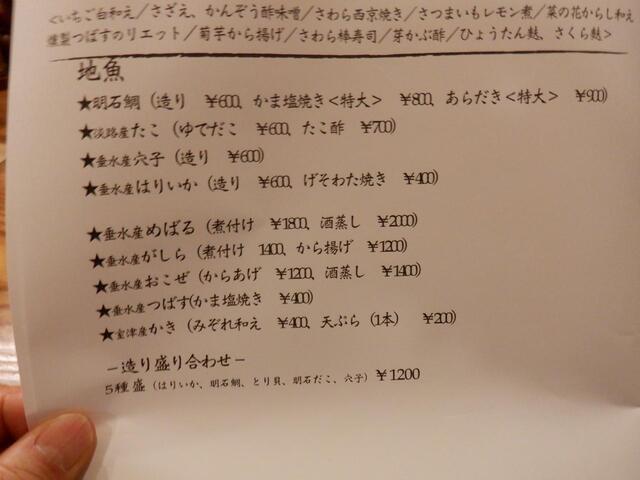 <いちご白和え/さざえ、かんぞう酢味噌/さわら西京焼き/さつまいもレモン煮/菜の花からし和え
燻製つばすのリエット/菊芋から揚げ/さわら棒寿司/芽かぶ酢/ひょうたん麩、さくら麩>
地魚
★明石鯛(造り ¥600、かま塩焼き<特大> ¥800、あらだき<特大> ¥900)
★淡路産たこ(ゆでだこ ¥600、たこ酢 ¥700)
★垂水産穴子(造り ¥600)
★垂水産はりいか(造り ¥600、げそわた焼き ¥400)
★垂水産めばる(煮付け ¥1800、酒蒸し ¥2000)
★垂水産がしら(煮付け 1400、から揚げ ¥1200)
★垂水産おこぜ(からあげ ¥1200、酒蒸し ¥1400)
★垂水産つばす(かま塩焼き ¥400)
★室津産かき(みぞれ和え ¥400、天ぷら(1本) ¥200)
−造り盛り合わせ−
5種盛(はりいか、明石鯛、とり貝、明石だこ、穴子)¥1200